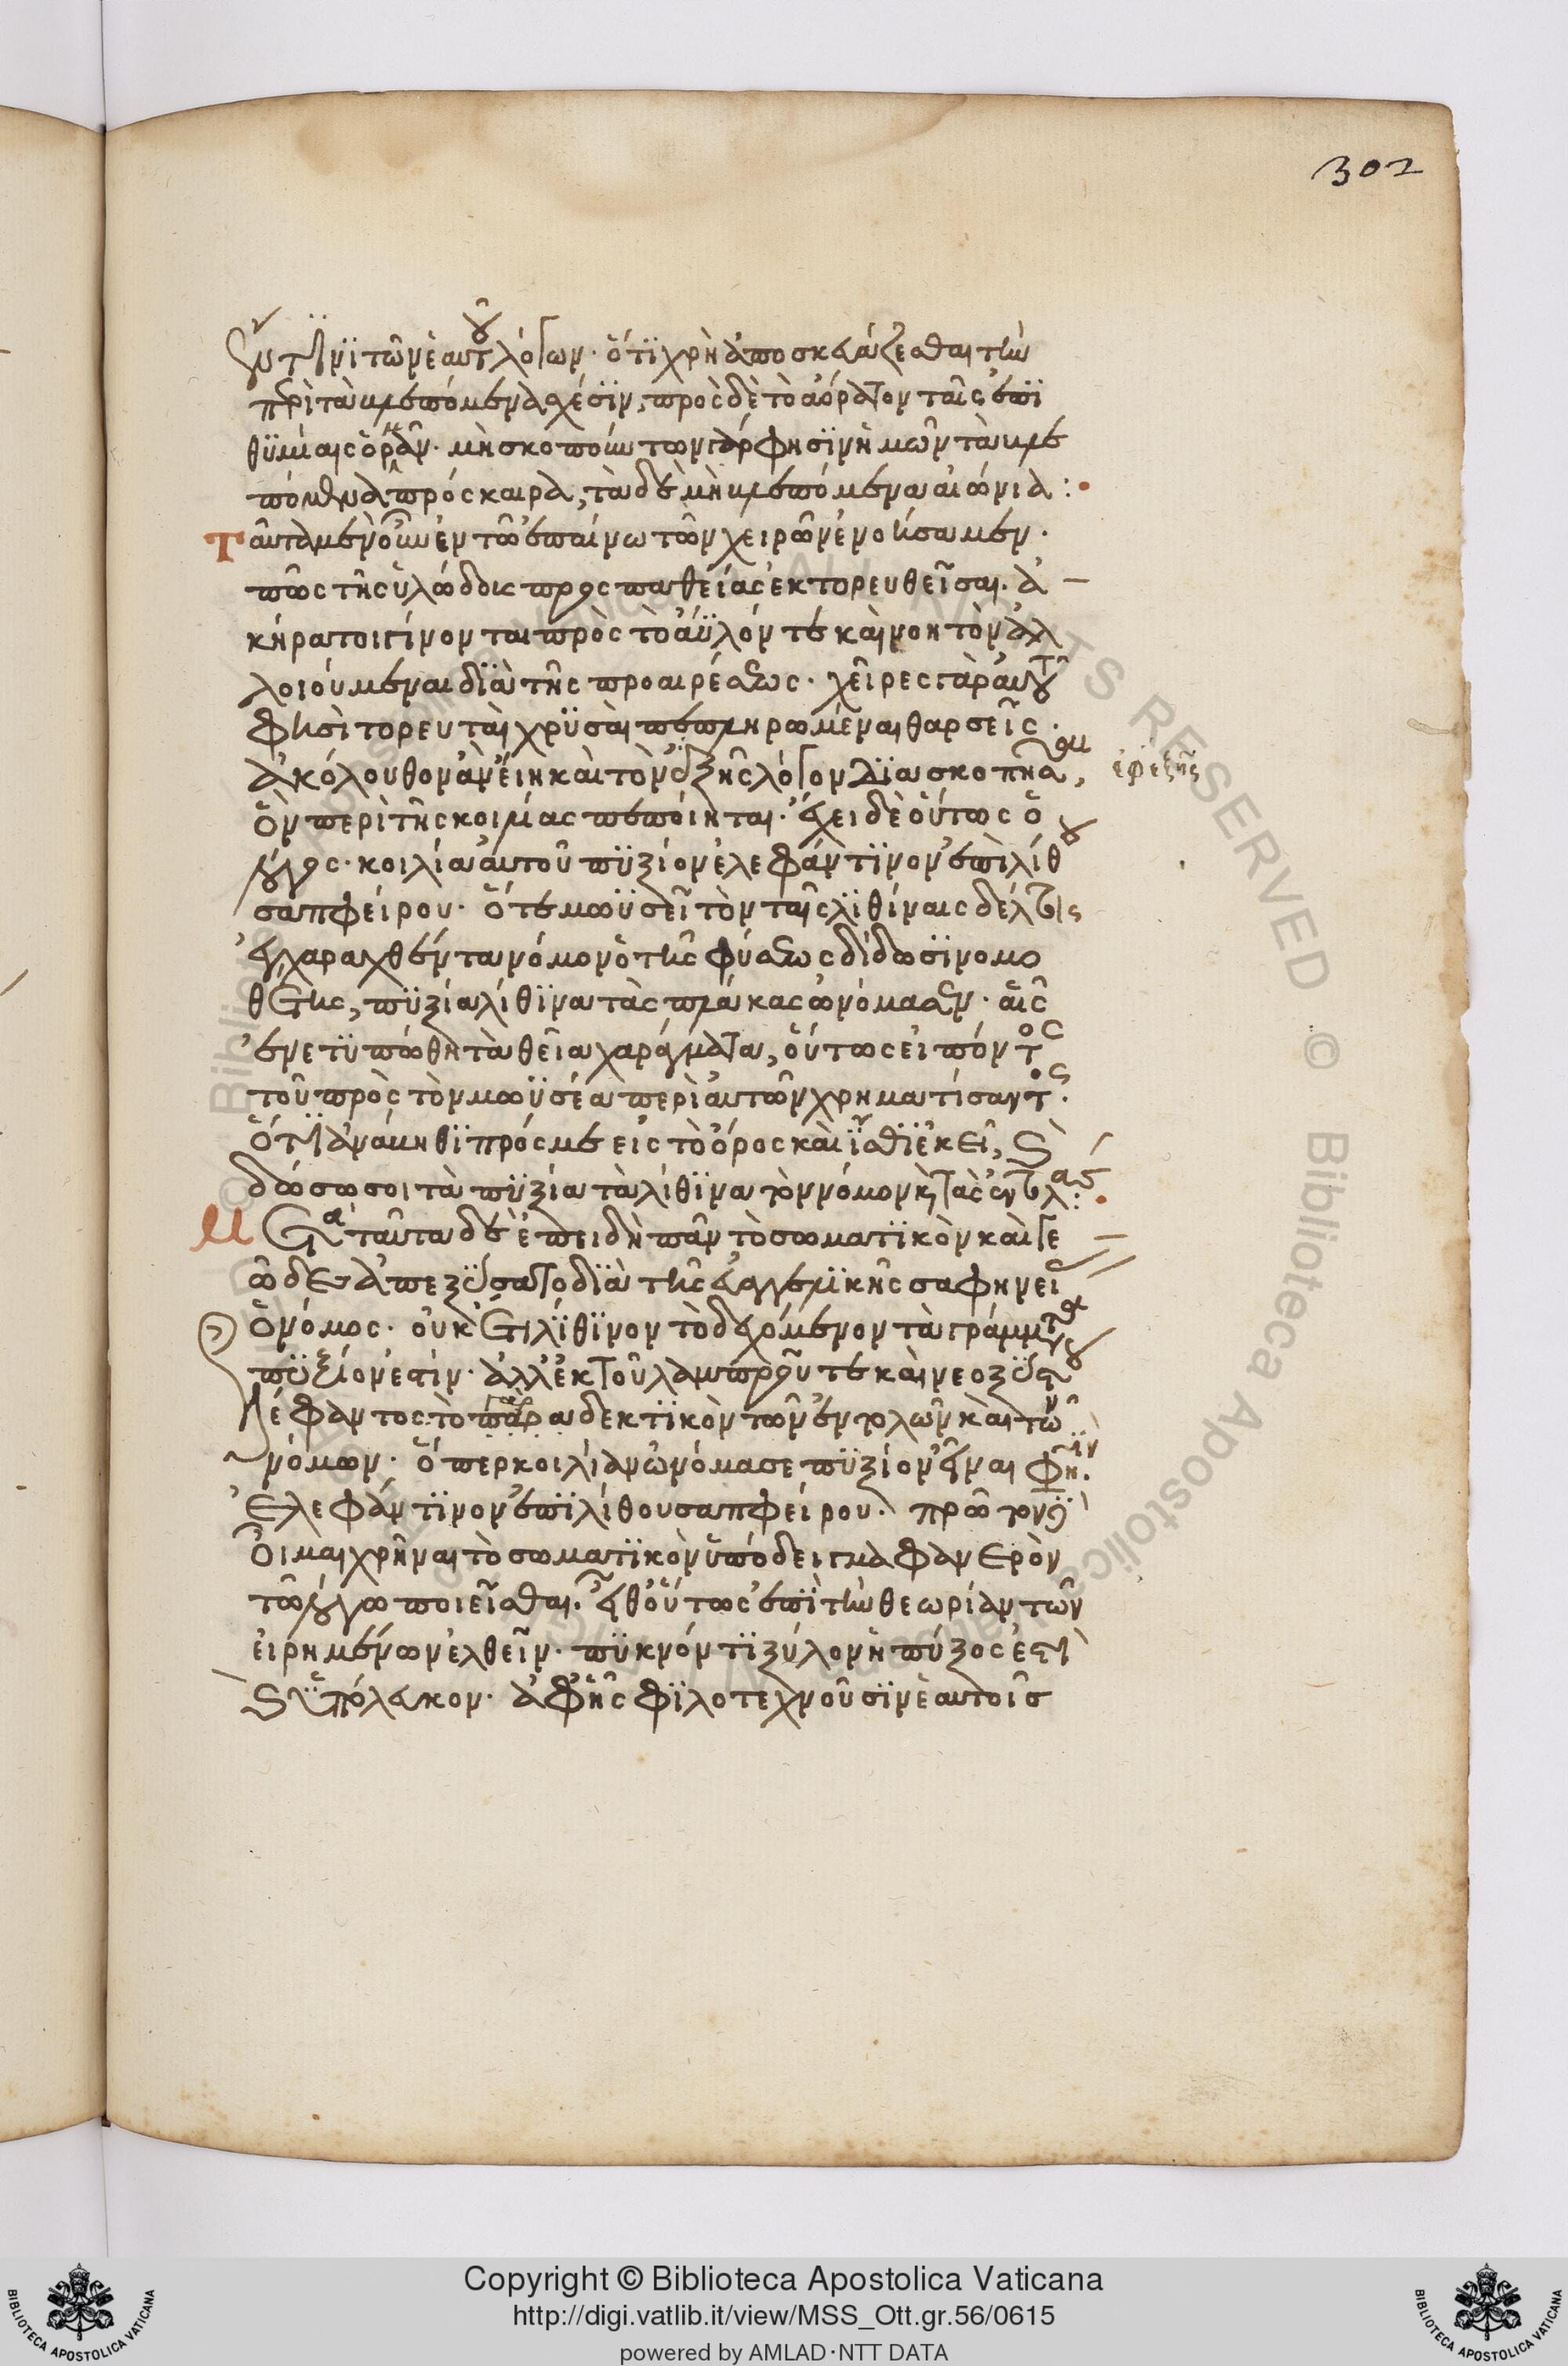 302
ἔν τινι τῶν ἑαυτοῦ λόγων· ὅτι χρὴ ἀποσκευάζεσθαι τὴν
περὶ τὰ βλεπόμενα σχέσιν, πρὸς δὲ τὸ ἀόρατον ταῖς ἐπι
θυμίαις ὁρμᾶν· μὴ σκοπούντων γάρ φησιν ἡμῶν τὰ βλε
πόμενα πρόσκαιρα, τὰ δὲ μὴ βλεπόμενα αἰώνια:
Ταῦτα μὲν οὖν ἐν τῷ ἐπαίνω τῶν χειρῶν ἐνοήσαμεν·
πῶς τῆς ὑλώδους προσπαθείας ἐκτορευθεῖσαι· ἀ
κήρατοι γίνονται πρὸς τὸ ἄϋλόν τε καὶ νοητὸν ἀλ
λοιούμεναι διὰ τῆς προαιρέσεως· χεῖρες γὰρ αὐτοῦ
φησὶ τορευταὶ χρυσαῖ πεπληρωμέναι θαρσεῖς·
ἀκόλουθον ἂν εἴη καὶ τὸν ἑξῆς λόγον διασκοπῆσαι,
ἐφεξῆς
ὃν περὶ τῆς κοιλίας πεποίηται· ἔχει δὲ οὕτως ὁ
λόγος· κοιλία αὐτοῦ πυξίον ἐλεφάντινον ἐπὶ λίθου
σαπφείρου· ὅτε μωϋσεῖ τὸν ταῖς λιθίναις δέλτοις
ἐγχαραχθέντα νόμον ὁ τῆς φύσεως δίδωσι νομο
θέτης, πυξία λίθινα τὰς πλάκας ὠνόμασεν· αἷς
ἐνετυπώθη τὰ θεῖα χαράγματα, οὕτως εἰπόντος
τοῦ πρὸς τὸν μωϋσέα περὶ αὐτῶν χρηματίσαντος·
ὅτι ἀνάβηθι πρός με εἰς τὸ ὄρος καὶ ἴσθι ἐκεῖ, καὶ
δώσω σοι τὰ πυξία τὰ λίθινα τὸν νόμον καὶ τὰς ἐντολάς:
Μετὰ ταῦτα δὲ ἐπειδὴ πᾶν τὸ σωματικὸν καὶ γε
ῶδες ἀπεξύσατο διὰ τῆς εὐαγγελικῆς σαφηνείας
ὁ νόμος· οὐκ ἔτι λίθινον τὸ δεχόμενον τὰ γράμματα
πυξίον ἐστίν· ἀλλ' ἐκ τοῦ λαμπροῦ τε καὶ νεοξύστου
ἐλέφαντος· τὸ γὰρ παραδεκτικὸν τῶν ἐντολῶν καὶ τῶν
νόμων· ὅπερ κοιλίαν ὠνόμασε πυξίον εἶναι φησιν·
Ἐλεφάντινον ἐπὶ λίθου σαπφείρου· πρῶτον
Οἶμαι χρῆναι τὸ σωματικὸν ὑπόδειγμα φανερὸν
τῷ λόγω ποιεῖσθαι· εἶθ' οὕτως ἐπὶ τὴν θεωρίαν τῶν
εἰρημένων ἐλθεῖν· πυκνόν τι ξύλον ἡ πύξος ἐστὶ
καὶ ὑπόλευκον· ἀφ' ἧς φιλοτεχνοῦσιν ἑαυτοῖς
Copyright © Biblioteca Apostolica Vaticana
http://digi.vatlib.it/view/MSS_Ott.gr.56/0615
powered by AMLAD·NTT DATA
BIBLIOTECA APOSTOLICA VATICANA
BIBLIOTECA APOSTOLICA VATICANA